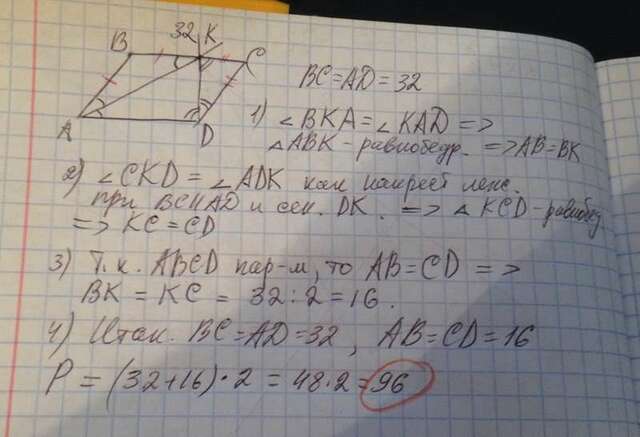 32 K
B
C
A
D
BC=AD=32
1) ∠BKA=∠KAD =>
△ABK-равнобедр. =>AB=BK
2) ∠CKD = ∠ADK как накрест леж.
при BC||AD и сек. DK. => △KCD-равнобед.
=> KC=CD
3) Т.к. ABCD пар-м, то AB=CD =>
BK = KC = 32:2=16.
4) Итак. BC=AD=32, AB=CD=16
P = (32+16)·2=48·2=96